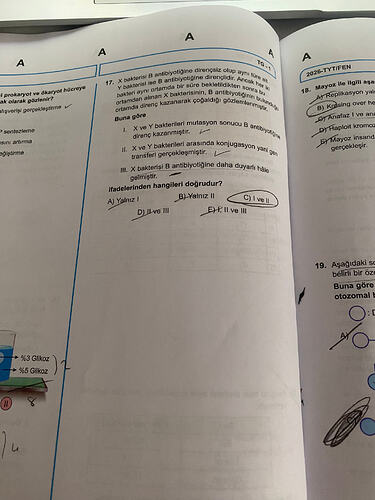 A
A
A
A
l prokaryot ve ökaryot hücreye
ak olarak gözlenir?
alışverişi gerçekleştirme
P sentezleme
sını artırma
eğiştirme
%3 Glikoz
%5 Glikoz
II
8
TG - 1
17. X bakterisi B antibiyotiğine dirençsiz olup aynı türe ait
Y bakterisi ise B antibiyotiğine dirençlidir. Ancak her iki
bakteri aynı ortamda bir süre bekletildikten sonra bu
ortamdan alınan X bakterisinin, B antibiyotiğini bulunduğu
ortamda direnç kazanarak çoğaldığı gözlemlenmiştir.
Buna göre
I. X ve Y bakterileri mutasyon sonucu B antibiyotiğine
direnç kazanmıştır.
II. X ve Y bakterileri arasında konjugasyon yani gen
transferi gerçekleşmiştir.
III. X bakterisi B antibiyotiğine daha duyarlı hâle
gelmiştir.
ifadelerinden hangileri doğrudur?
A) Yalnız I B) Yalnız II C) I ve II
D) II ve III E) I, II ve III
2026-TYT/FEN
18. Mayoz ile ilgili aşa
A) Replikasyon
B) Krosing over
C) Anafaz I ve
D) Haploit kromoz
E) Mayoz insanda
gerçekleşir.
19. Aşağıdaki
belirli bir
Buna göre
otozomal
A)